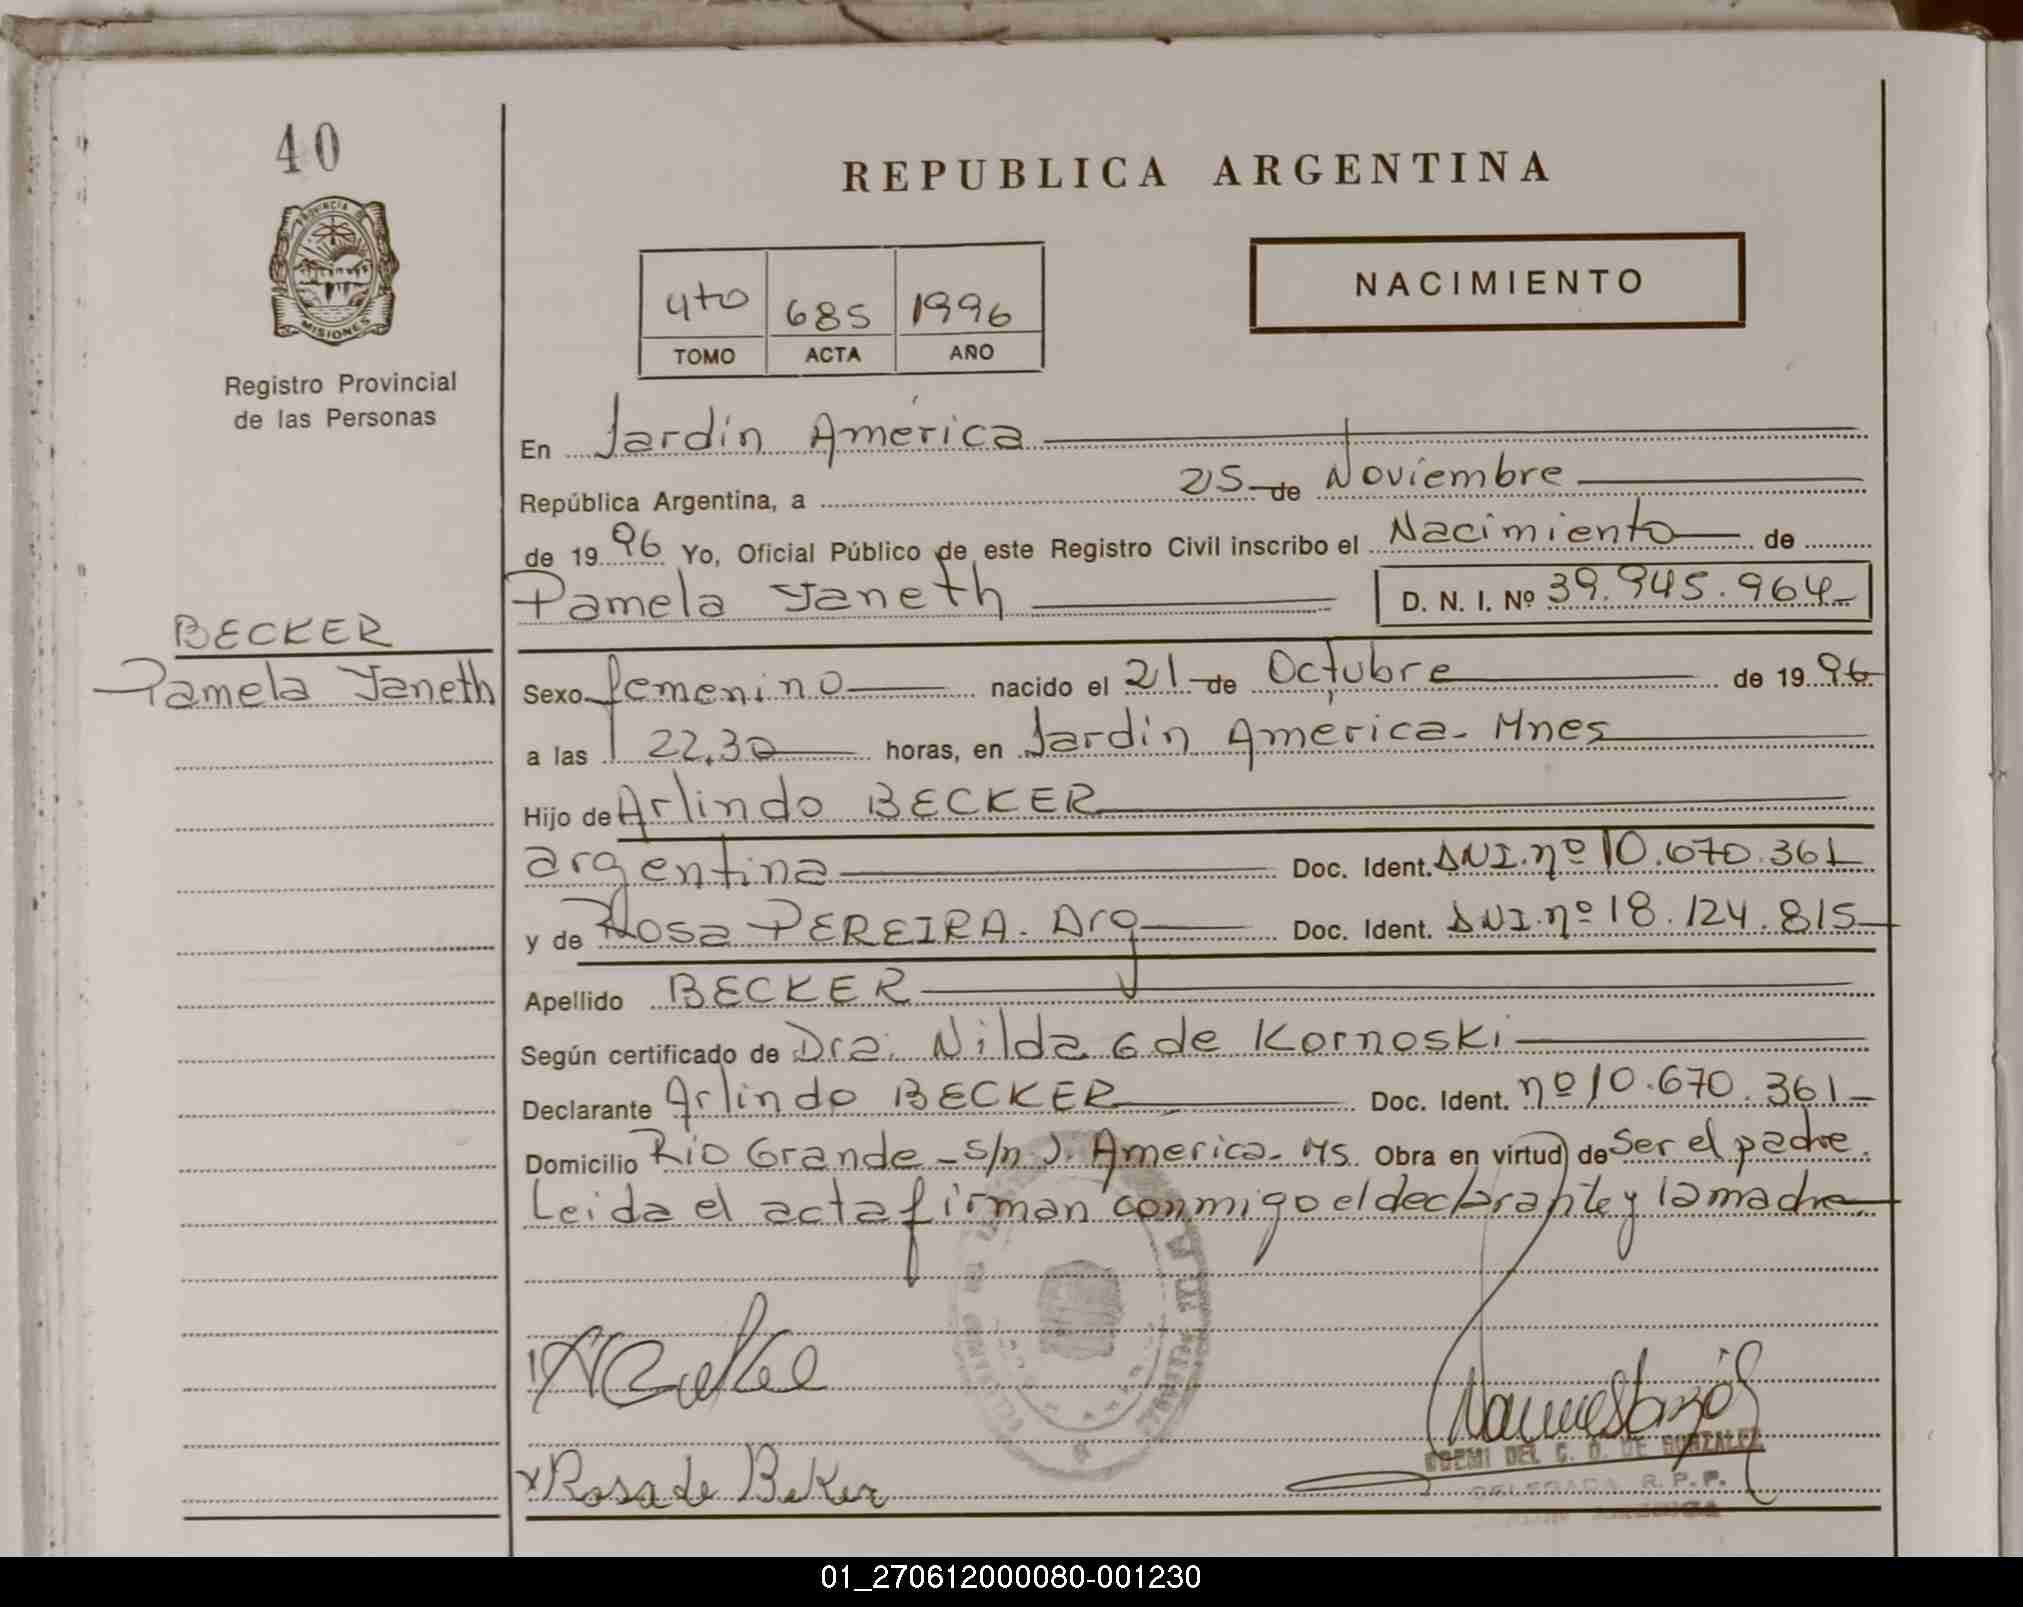 40
PROVINCIA DE
MISIONES
Registro Provincial
de las Personas
BECKER
Pamela Yaneth
REPUBLICA ARGENTINA
4to 685 1996
TOMO ACTA AÑO
NACIMIENTO
En Jardín América
República Argentina, a 25 de Noviembre
de 1996 Yo, Oficial Público de este Registro Civil inscribo el Nacimiento de
Pamela Yaneth D. N. I. Nº 39.945.964
Sexo femenino nacido el 21 de Octubre de 1996
a las 22,30 horas, en Jardín America - Mnes
Hijo de Arlindo BECKER
argentina Doc. Ident. DNI. nº 10.670.361
y de Rosa PEREIRA - Arg Doc. Ident. DNI. nº 18.124.815
Apellido BECKER
Según certificado de Dra. Nilda G de Kornoski
Declarante Arlindo BECKER Doc. Ident. nº 10.670.361
Domicilio Río Grande - s/n J. America - Ms. Obra en virtud de ser el padre.
Leida el acta firman conmigo el declarante y la madre
Rosa de Beker
DEL C. O. DE GONZALEZ
DELEGADA R. P. P.
01_270612000080-001230